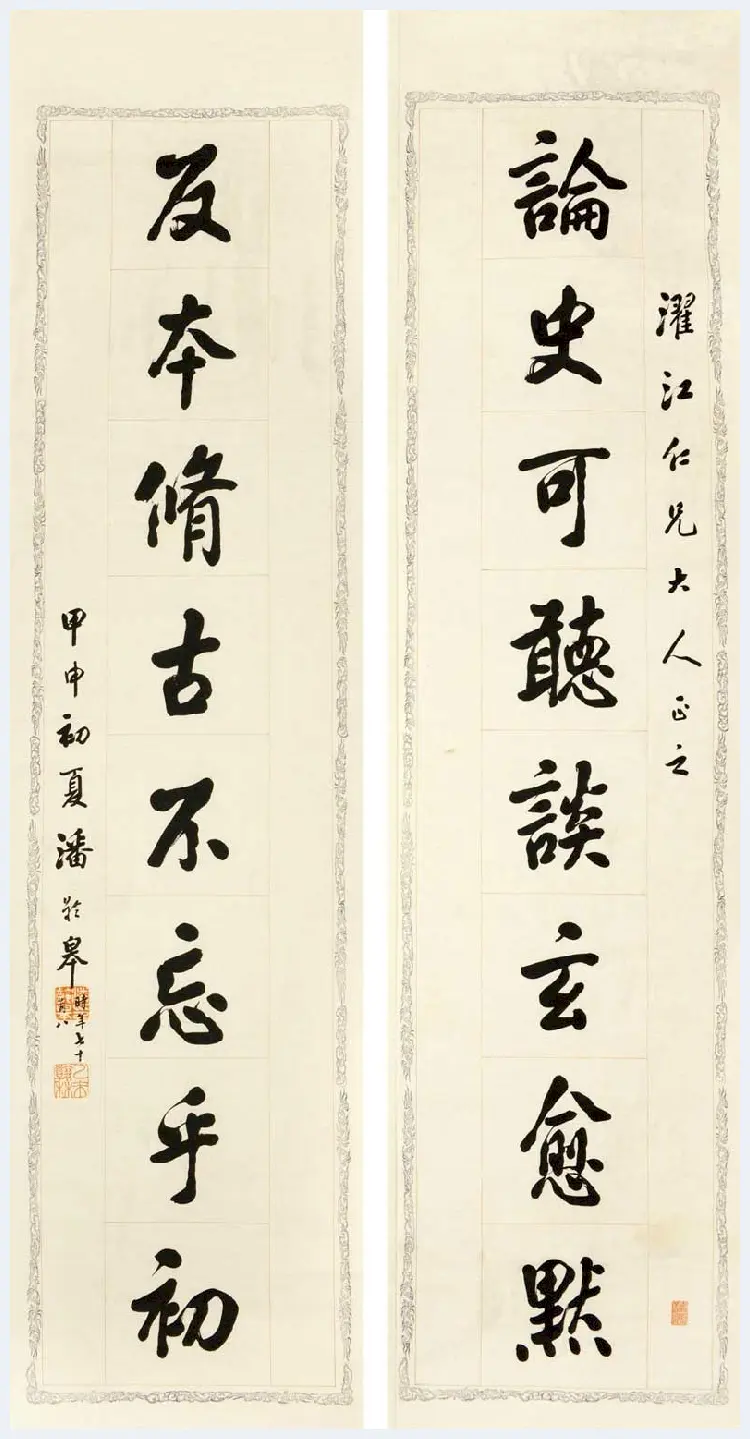 濯江仁兄大人正之
論史可聽談玄愈默
反本脩古不忘乎初
甲申初夏潘齡皋
時年七十
有八